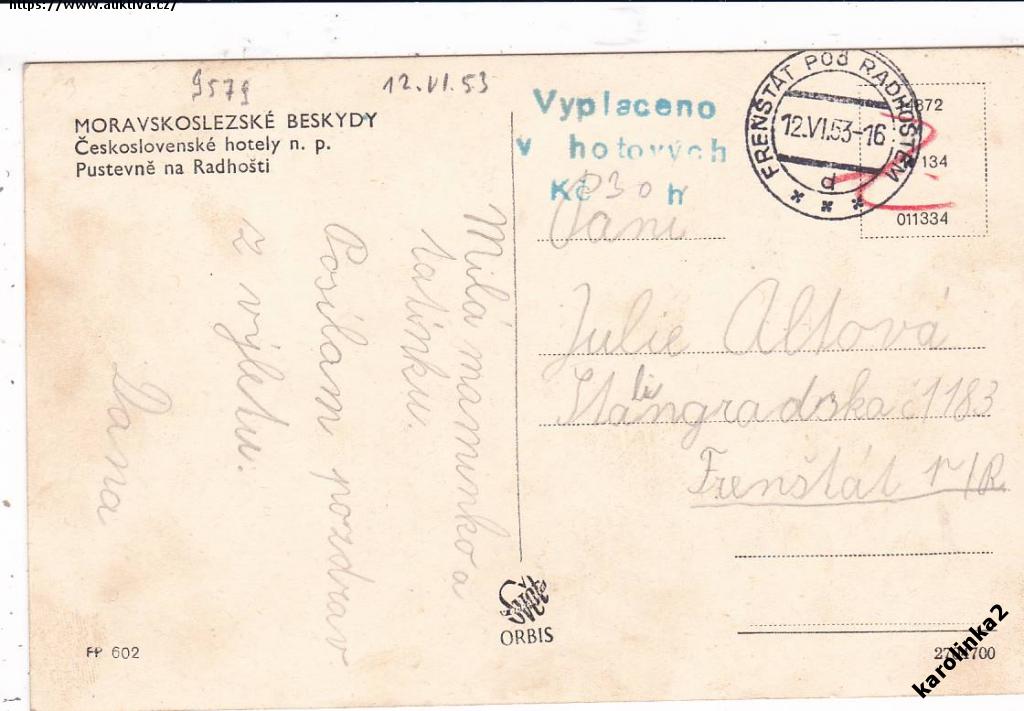 https://www.auktiva.cz/
9579
12.VI.53
MORAVSKOSLEZSKÉ BESKYDY
Československé hotely n. p.
Pustevně na Radhošti
Vyplaceno
v hotových
Kč 030 h
FRENŠTÁT POD RADHOŠTĚM
12.VI.53-16
d
134
011334
Milá maminko a
tatínku.
Posílam pozdrav
z výletu.
Dana
Paní
Julie Altová
Stalingradzka č 1183
Frenštát r/R
Svět
ORBIS
FP 602
karolinka2